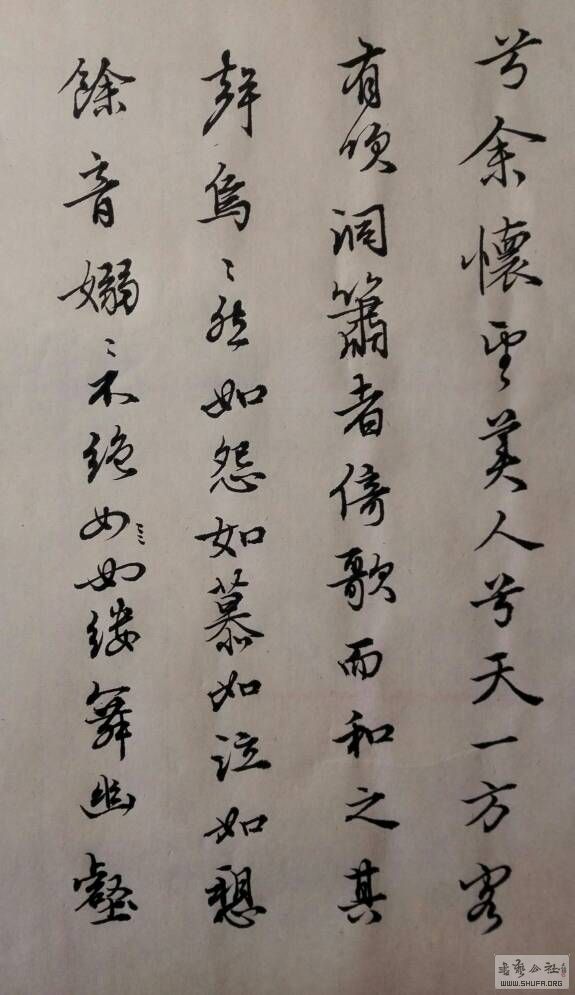 兮余懷望美人兮天一方客
有吹洞簫者倚歌而和之其
聲烏〻然如怨如慕如泣如愬
餘音嫋〻不絕如縷舞幽壑
書藝公社
WWW.SHUFA.ORG